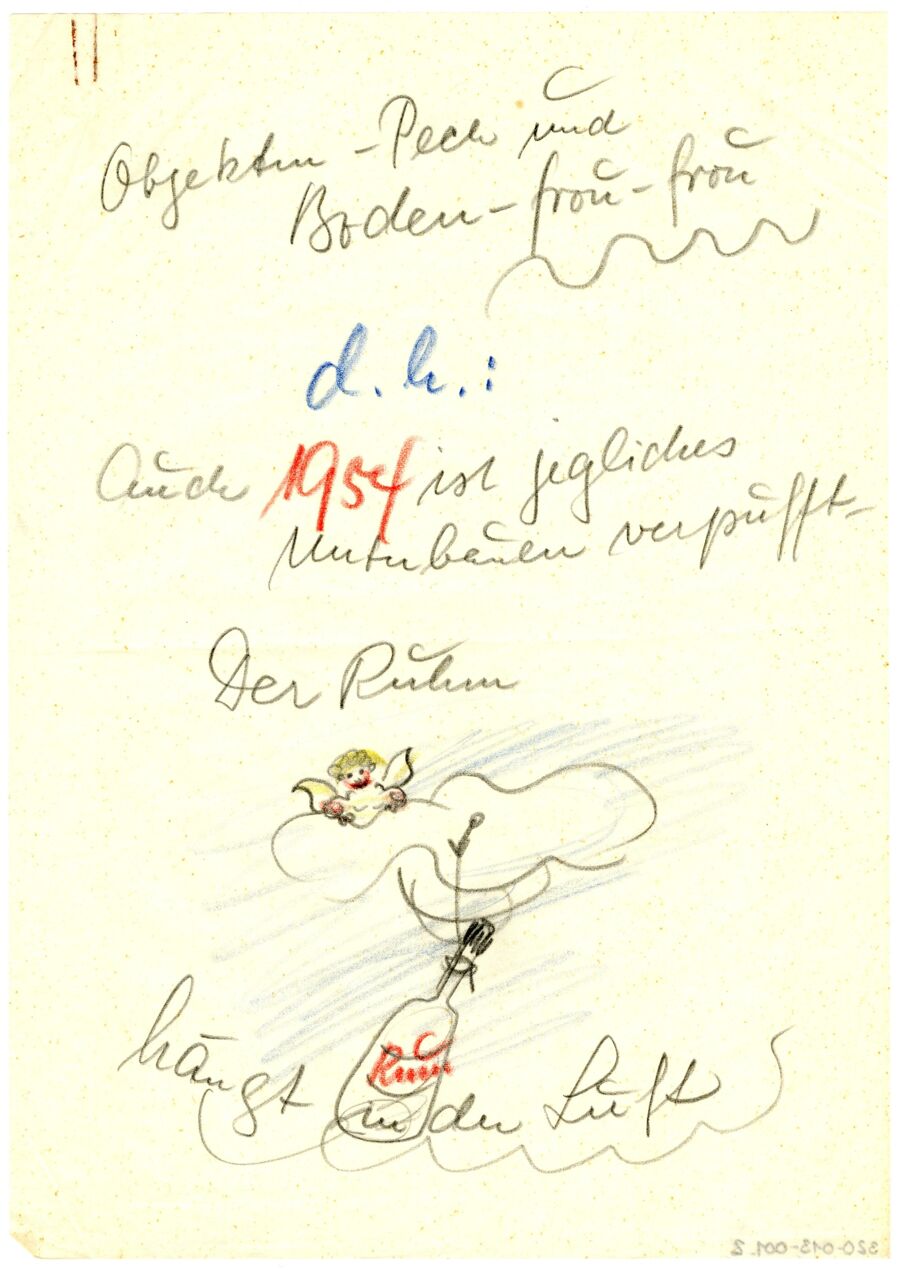 Objekten-Pech und
Boden-frou-frou
d.h.:
Auch 1954 ist jegliches
Unterbauen verpufft-
Der Ruhm
Rum
hängt in der Luft
320-013-001.2